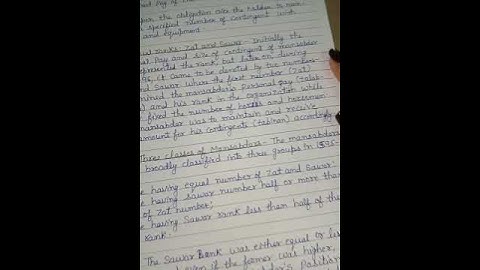 upon the obligation was the holders to main
specified number of contingent with
and equipment
Ranks: Zat and Sawar - Initially the
Pay and size of contingent of mansabdar
represented the rank, but later on during
it came to be denoted by two numbers
Sawar where the first number (Zat)
mined the mansabdar's personal pay (talab-
and his rank in the organisation while
fixed the number of horses and horsemen
mansabdar was to maintain and receive
amount for his contingents (tabinan) accordingly
Three classes of Mansabdars - The mansabdars
broadly classified into three groups in 1595-
having equal number of Zat and Sawar;
having sawar number half or more than
of Zat number;
having Sawar rank less than half of the
rank.
The Sawar Rank was either equal or less
even if the former was higher,
position